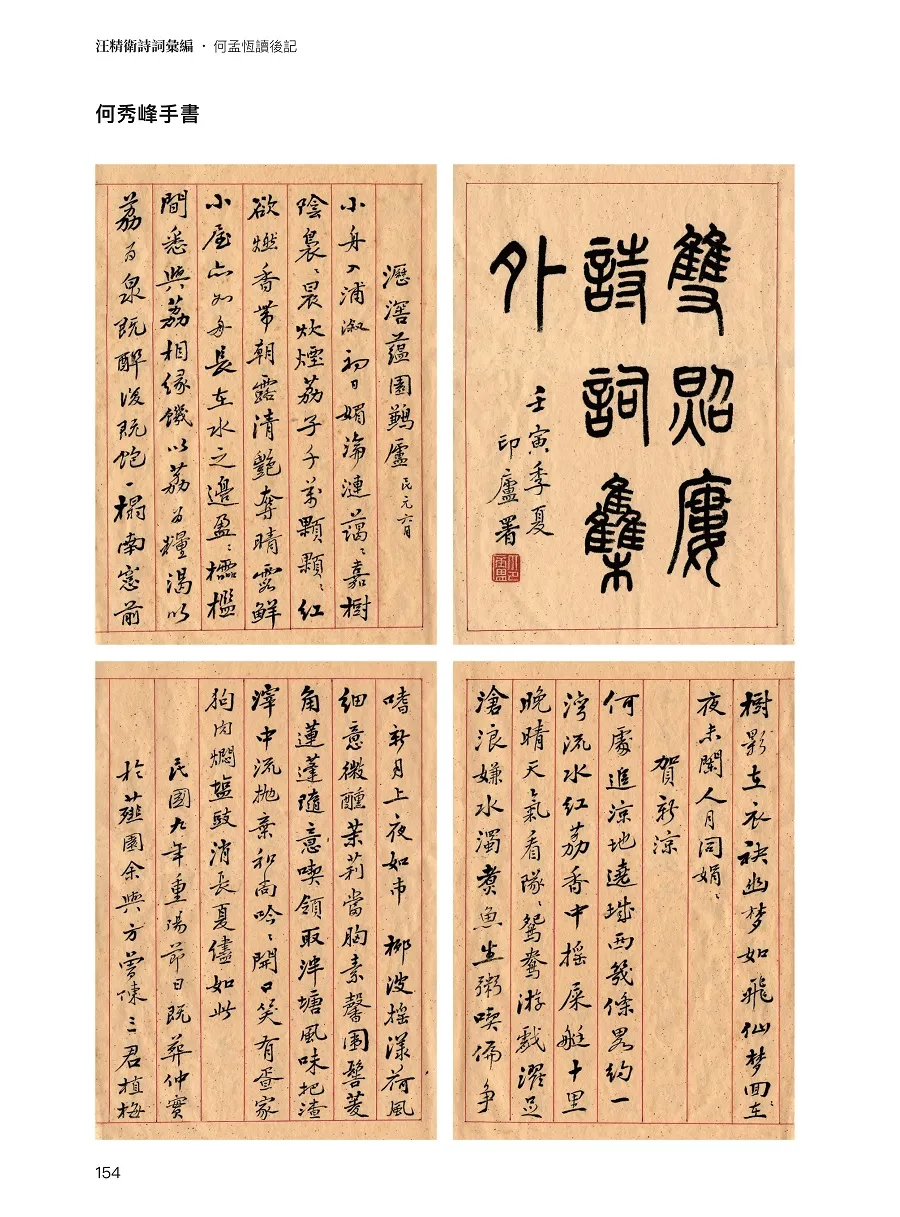 汪精衛詩詞彙編 · 何孟恆讀後記
何秀峰手書
雙照廔
詩詞雧
外
壬寅季夏
印廬署
瀝滘蘊園鷬廬 民元六月
小舟入浦溆初日媚淪漣藹〻嘉樹
陰裊〻晨炊煙荔子千萬顆顆〻紅
欲燃香帶朝露清艷奪晴霞鮮
小屋亦如舟長在水之邊盈〻櫺檻
間悉與荔相緣饑以荔為糧渴以
荔為泉既醉復既飽一榻南窗前
樹影在衣袂幽夢如飛仙夢回在〻
夜未闌人月同娟〻
賀新涼
何處進涼地遶城西幾條畧約一
灣流水紅荔香中搖屎艇十里
晚晴天氣看隊〻鴛鴦游戲濯足
滄浪嫌水濁煑魚生粥喫偏爭
嗜新月上夜如市 柳波搖漾荷風
細意微醺茉莉當胸素馨圍髻菱
角蓮蓬隨意喫領取泮塘風味把渣
滓中流拋棄和尚吟〻開口笑有疍家
狗肉燜鹽豉消長夏儘如此
民國九年重陽節日既葬仲實
於薤園余與方曾陳三君植梅
154